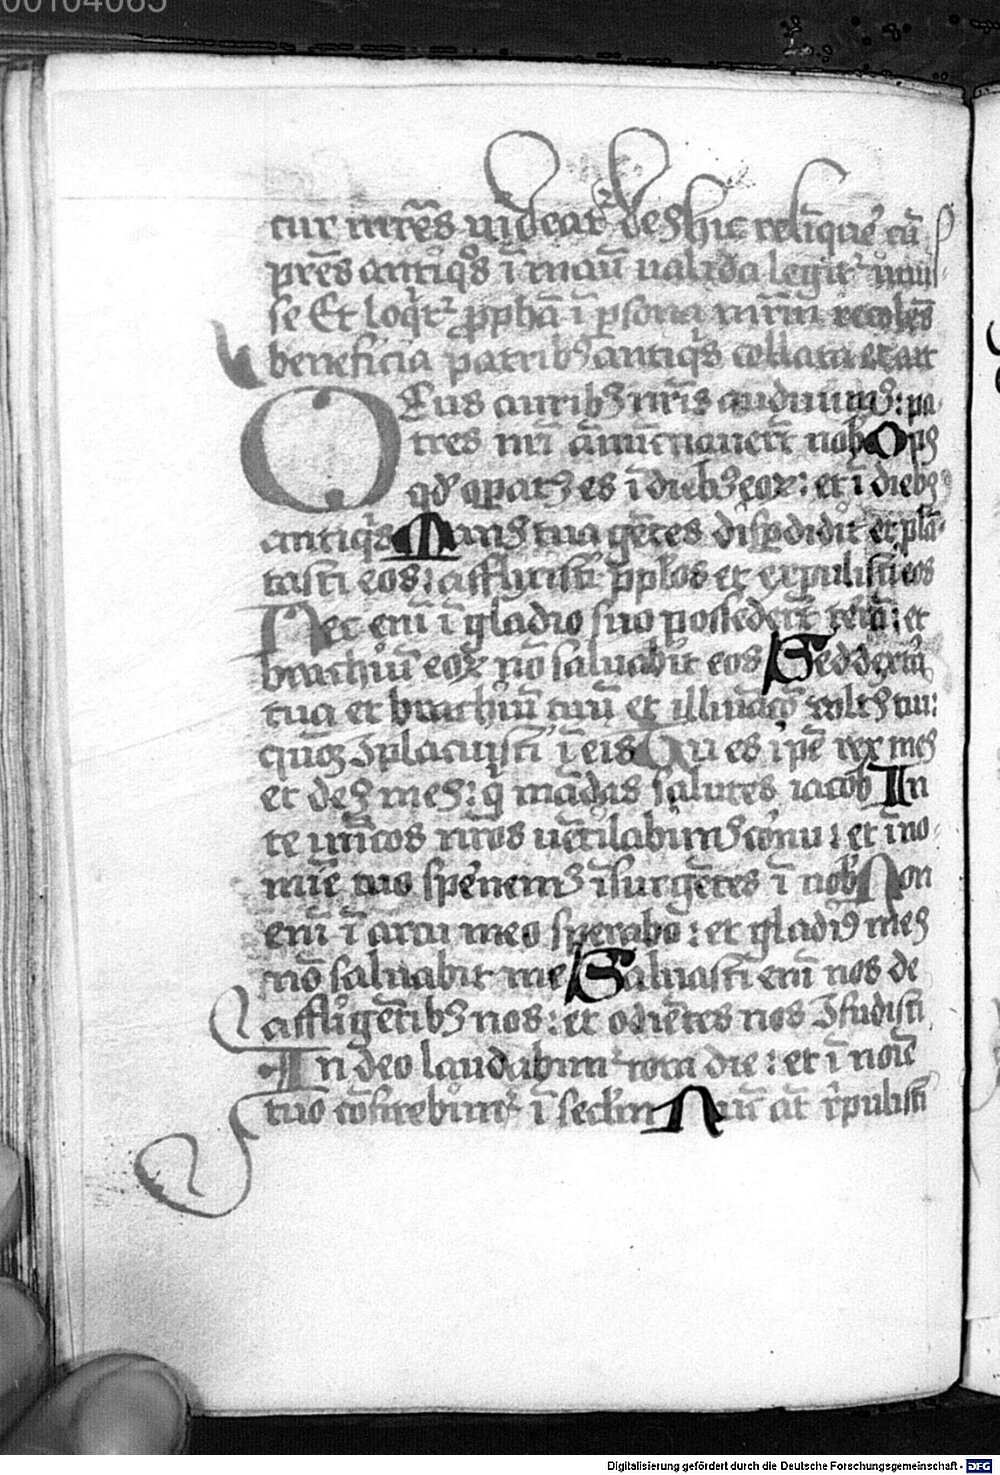 00104085
cur mr̄es videat᷑ deꝰ hic relīq̄re cū
pr̄es antiq̊s ī manu valida legit᷑
se Et loq̄r᷑ ꝓpha ī ꝑsona recolēs
beneficia patribꝰ antiq̊s collata et ait
Deus auribꝰ nr̄is audiuimꝰ : pa-
tres nr̄i ānūctiauert̄ nob̄ Opꝰ
qd̄ oꝑatꝰ es ī diebꝰ eoꝝ : et ī diebꝰ
antiq̊s Manꝰ tua gētes disꝑdidit et plā-
tasti eos : afflixisti pp̄los et expulisti eos
Nec em̄ ī gladio suo possedert̄ terrā : et
brachiū eoꝝ nō saluabit eos Sed dextera
tua et brachiū tuū et illūiatō vultꝰ tui :
qm̄ ↄplacuisti ī eis Tu es ip̄e rex meꝰ
et deꝰ meꝰ : q̇ mādas salutes iacob In
te inīcos nr̄os vētilabimꝰ cornu : et ī no-
mīe tuo sꝑnemꝰ īsurgētes ī nob̄ Non
em̄ ī arcu meo sperabo : et gladiꝰ meꝰ
nō saluabit me Saluasti em̄ nos de
affligētibꝰ nos : et odiētes nos ↄfudisti
In deo laudabim᷑ tota die : et ī noīe
tuo cōfitebim᷑ ī secl̄m Nūc aūt rēpulisti
Digitalisierung gefördert durch die Deutsche Forschungsgemeinschaft - DFG